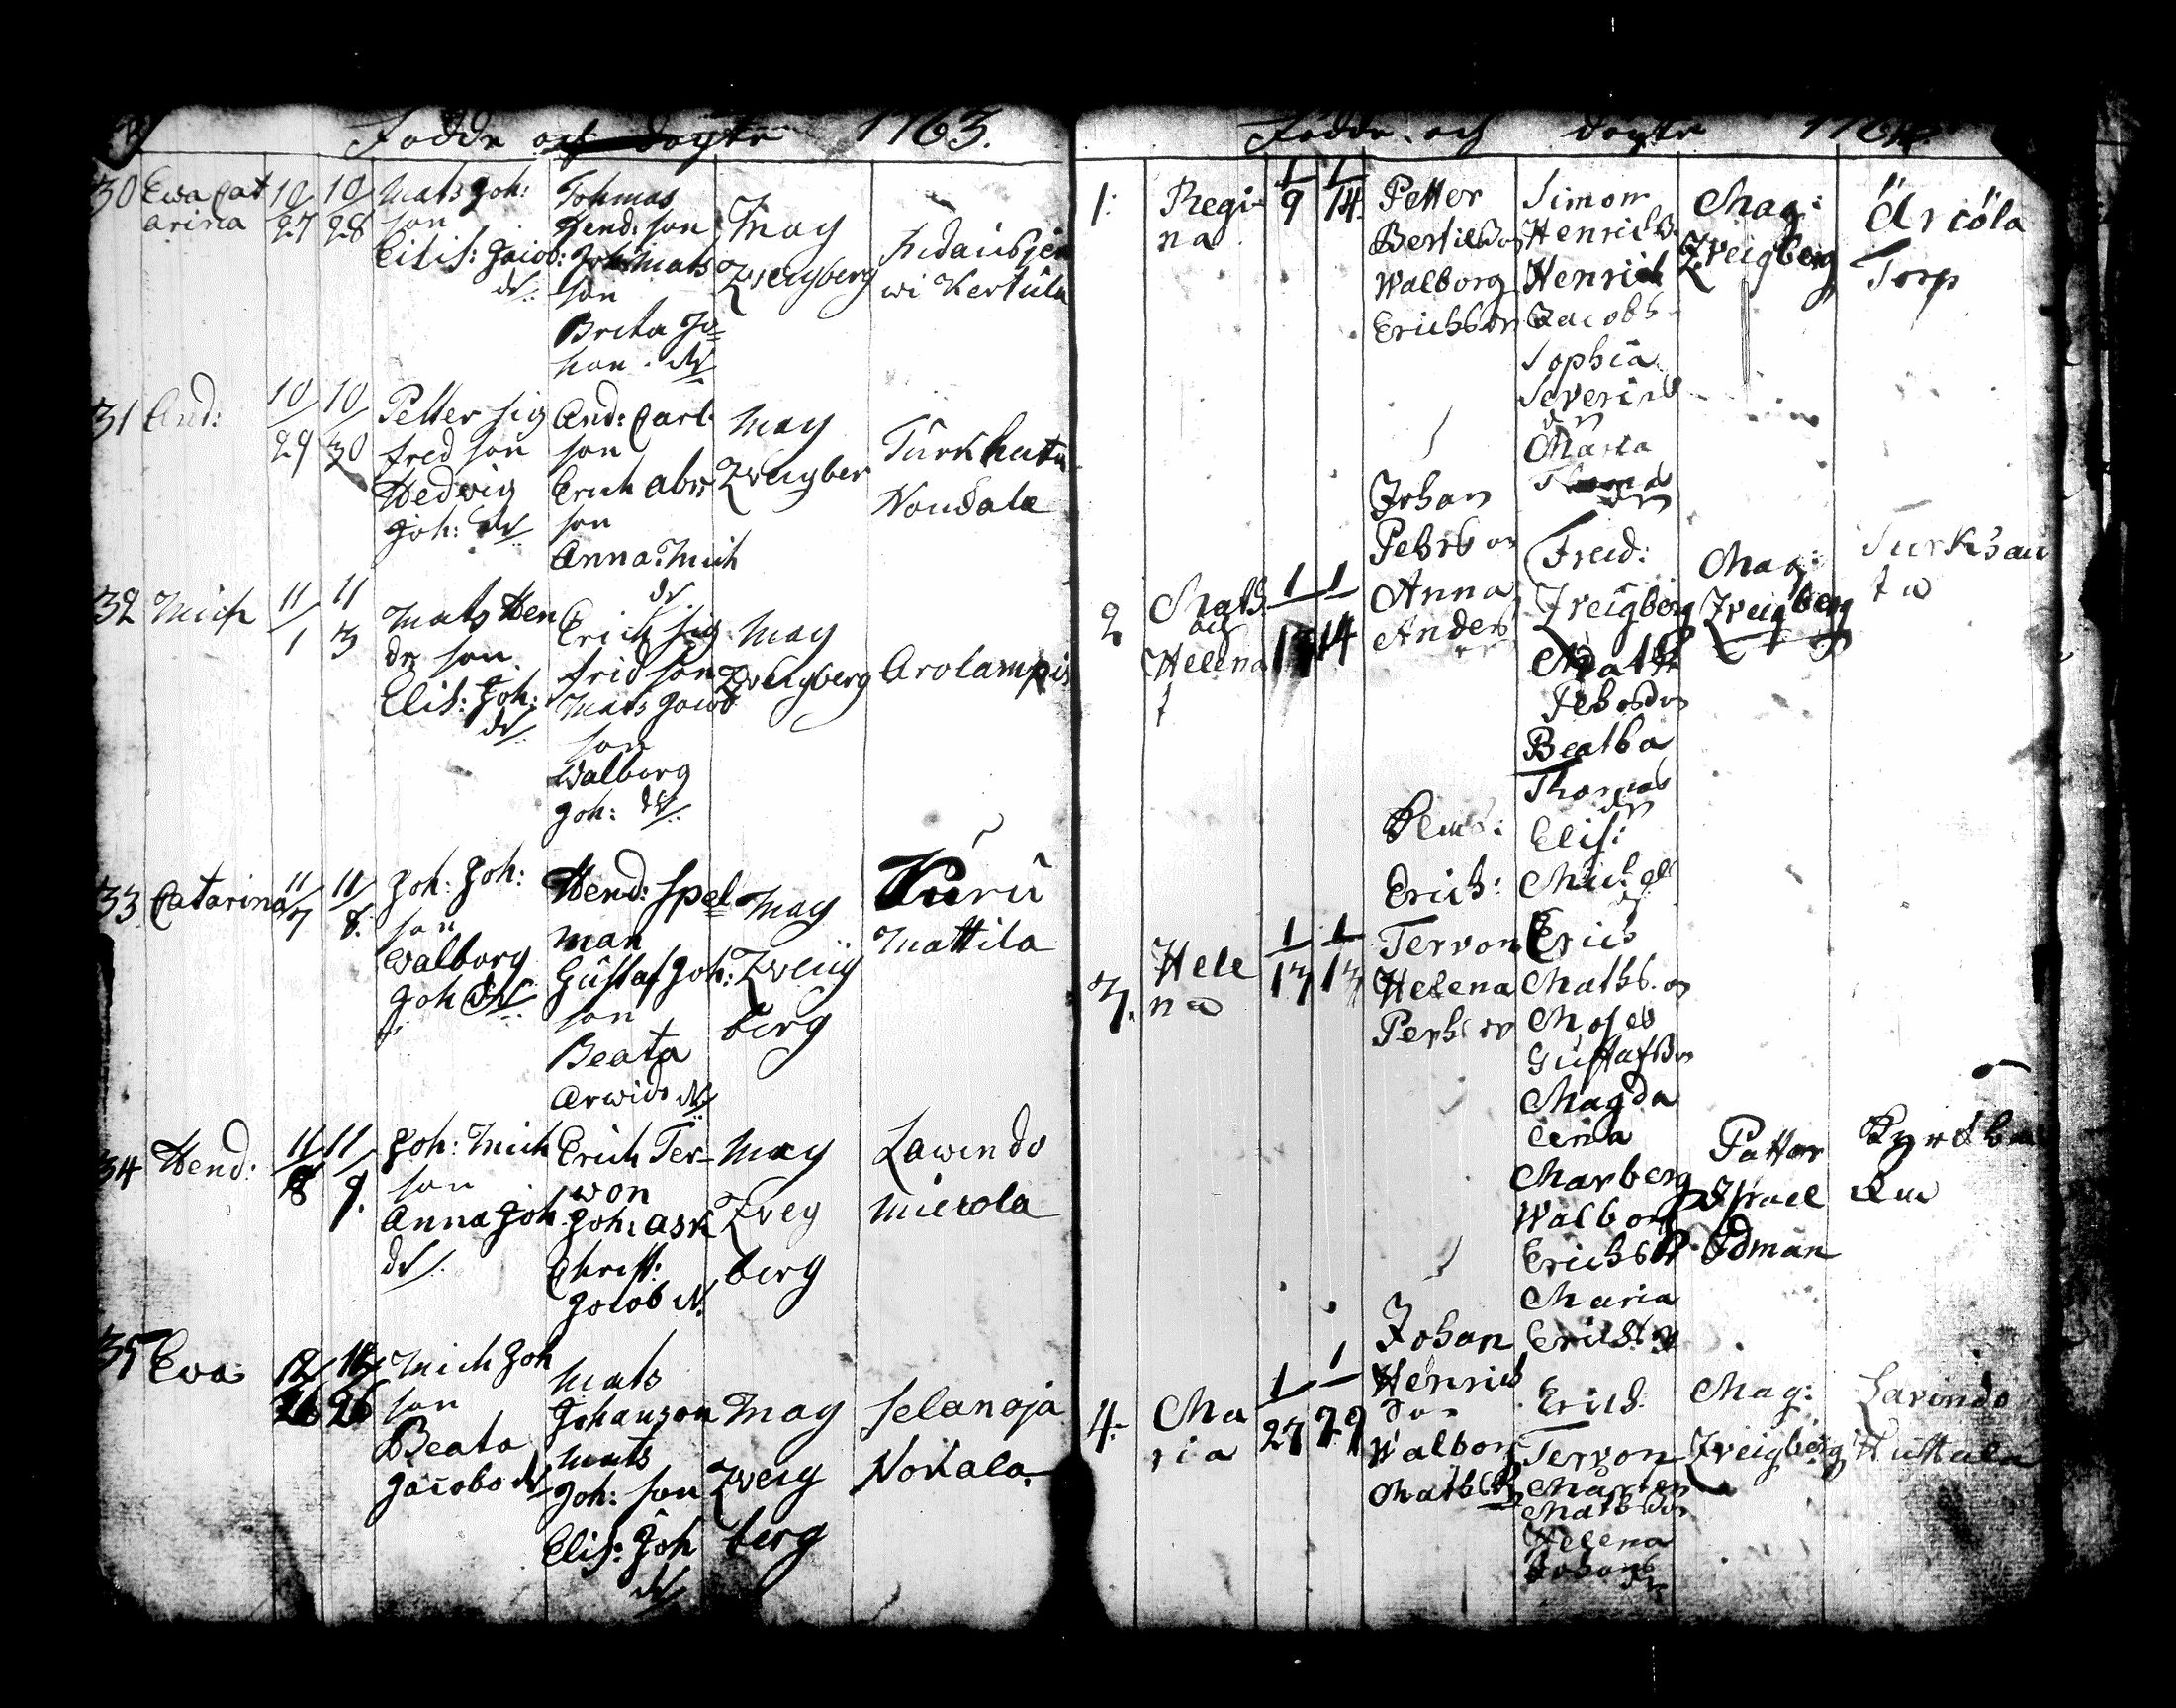 Födde och Dögte 1763.
30 Ewa Cat
arina
10/27 10/28
Mats Joh:
son
Elis: Jacob:
dr.
Tohmas
Hend: son
Joh: Mats
son
Brita Jo=
han. dr
Mag
Zweigberg
wi Kertula
31 And:
10/29 10/30
Petter Sig
fred son
Hedwig
Joh: dr
And: Carl
son
Erich Abr:
son
Anna: Mich
dr
Mag
Zweigber
Turkhata
Noudala
32 Mich
11/1 11/3
Mats Hen
dr son.
Elis: Joh:
dr.
Erich Sig
frid son
Mats Jacob
son
Walborg
Joh: dr
Mag
Zweigberg
Arolampi
33 Catarina
11/7 11/8.
Joh: Joh:
son
Walborg
Joh dr
Hend: Spel=
man
Gustaf Joh:
son
Beata
Arwids dr
Mag
Zweig
berg
Kuru
Mattila
34 Hend:
11/8 11/9.
Joh: Mich
son
Anna Joh
dr.
Erich Ter=
won
Joh: Ask
Christ:
Jacob dr.
Mag
Zweg
berg
Lawindo
Mierola
35 Ewa
12/26 12/26
Mich Joh
son
Beata
Jacobs dr
Mats
Johanson
Mats
Joh: son
Elis: Joh
dr
Mag
Zweig
berg
Selanoja
Nokala.
Födde och Dögte 1764
1: Regi=
na
1/9 1/14.
Petter
Bertilson
Walborg
Erichsdr
Simon
Henrichs.
Henrich
Jacobs
Sophia
Severins
dr
Maria
dr
Mag:
Zveigberg
Ärcöla
Torp
2 Math
och
Helena
†
1/13 1/14
Johan
Pehrson
Anna
Anders
dr
Fred:
Zveigberg
Math
Pehrsdr
Beatha
Thomas
dr
Elis:
Michels
dr
Mag:
Zveigberg
Turkhau
ta
3. Hele
na
1/13 1/13
Erich:
Tervon
Helena
Pehrsdr
Erich
Mathson
Moses
Gustafson
Magda
lena
Marberg
Walborg
Erichsdr
Maria
Erichsdr
Pattor
Israel
Idman
4. Ma
ria
1/27 1/29
Johan
Henrich
son
Walbor
Mathsdr
Erich
Tervon
Mårten
Mathsson
Helena
Johans
dr
Mag:
Zveigberg
Lavindo
Huttala